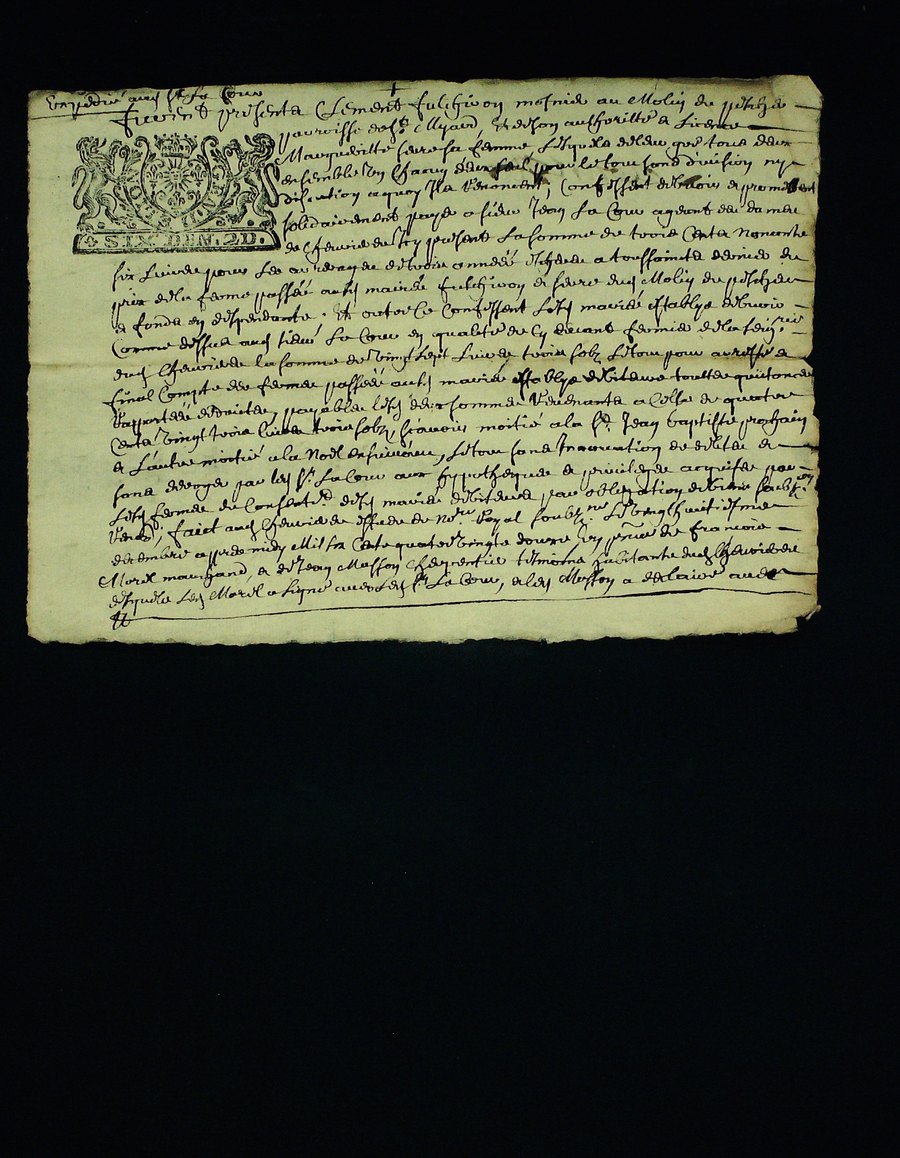 Expédié aud Sr La Cour
furent présents Clement fulchiron mosnier au Molin du peschier
parroisse de St Myard, et de son authoritté et licence
Marguerite serre sa femme lesquels de leur gré tous deux
ensemble un chacun d'eux seul pour le tout sans division ny
discution a quoy ils renoncent, Confessent debvoir et promettent
solidairement payer a sieur Jean La Cour ageant des dames
de Chevrieres icy present La somme de trois Cents Nonante
six livres pour les arrerages de trois années escheues a toussaincts dernier du
prix de la ferme passée aud mariés fulchiron et serre dud Molin du peschier
et fonds en despendants. Et outre ce Confessent lesd mariés establys debvoir
Comme dessus aud sieur La Cour en qualité de cy devant fermier de la seigrie
dud Chevrieres la somme de vingt sept livres trois solz le tout pour arresté et
final Compte des fermes passées aud mariés establys debiteurs touttes quittances
rapportées et deduites, payables lesd deux sommes revenants a Celle de quatre
Cents vingt trois livres trois solz, sçavoir moitié a la St Jean baptiste prochain
et l'autre moitié a la Noël ensuivant, Le tout sans Innovation de debtes et
sans desroger par led Sr La Cour aux hypotheques et privileges acquises par
lesd fermes du Consentt desd mariés debiteurs par obligation de biens soubzons
renons, faict aud Chevrieres estude du Nore Royal soubzné le vingt huit iesme
decembre apres midy Mil six Cents quatre vingts douze en pnce de francois
Morel marchand, et de Jean Masson Charpentier tesmoins habitants dud Chevrieres
desquels led Morel a signé avec led Sr La Cour, et led Masson a declaré avec
SIX.DEN.2D.